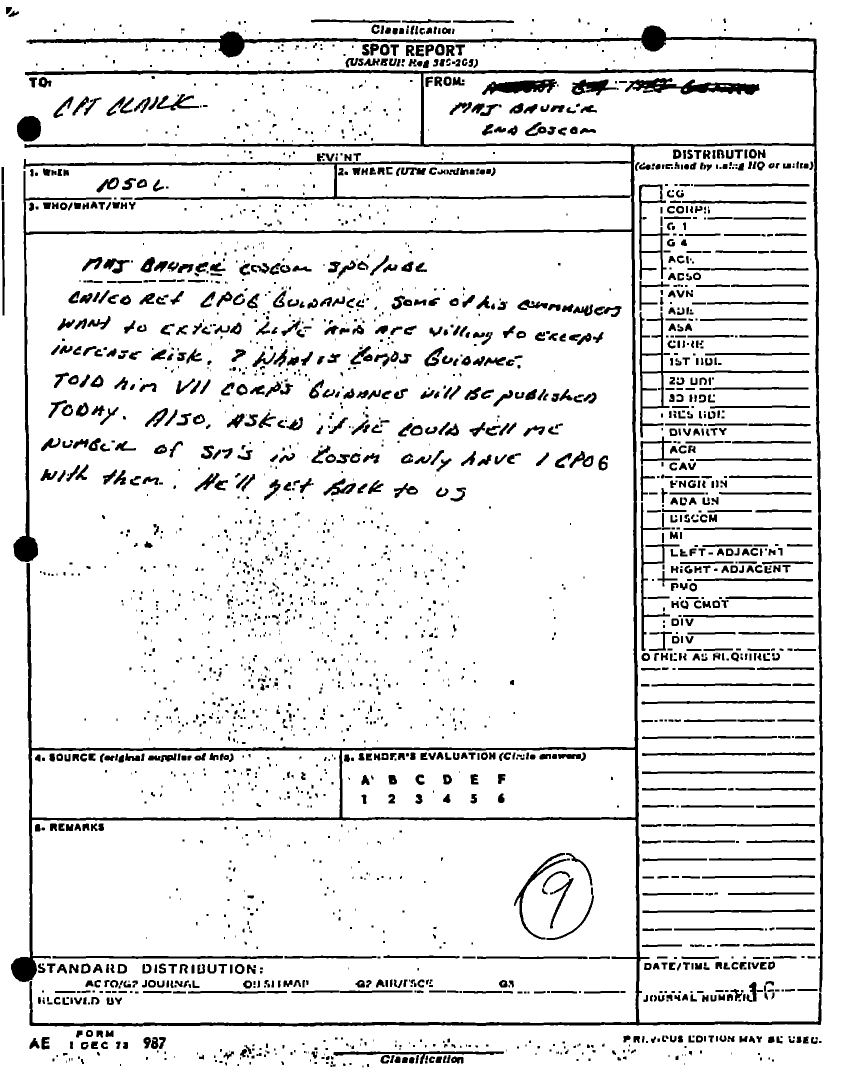 Classification
SPOT REPORT
(USAREUR Reg 380-205)
TO:
CPT CLARK
FROM:
MAJ BAUMER
2ND COSCOM
EVENT
1. WHEN
1050L
2. WHERE (UTM Coordinates)
3. WHO/WHAT/WHY
MAJ BAUMER COSCOM SPO/NBC
CALLED REF CPOG GUIDANCE. SOME of his COMMANDERS
WANT to EXTEND LIFE AND ARE willing to EXCEPT
INCREASE RISK. ? WHAT is CORPS GUIDANCE.
TOLD him VII CORPS GUIDANCE will BE publisHED
TODAY. ALSO, ASKED if HE COULD tell ME
NUMBER of SM's in COSCOM only HAVE 1 CPOG
WITH them. HE'll get BACK to US
DISTRIBUTION
(determined by using HQ or units)
CG
CORPS
G 1
G 4
ACE
ADSO
AVN
ADE
ASA
1ST BDE
2D BDE
3D BDE
RES BDE
DIVARTY
ACR
CAV
ENGR BN
ADA BN
DISCOM
MI
LEFT - ADJACENT
RIGHT - ADJACENT
PMO
HQ CMDT
DIV
DIV
OTHER AS REQUIRED
4. SOURCE (original supplier of info)
5. SENDER'S EVALUATION (Circle answers)
A B C D E F
1 2 3 4 5 6
6. REMARKS
9
STANDARD DISTRIBUTION:
G2 JOURNAL SITMAP G2 AIR/FSCE G3
RECEIVED BY
DATE/TIME RECEIVED
JOURNAL NUMBER 16
AE FORM 1 DEC 73 987
PREVIOUS EDITION MAY BE USED.
Classification